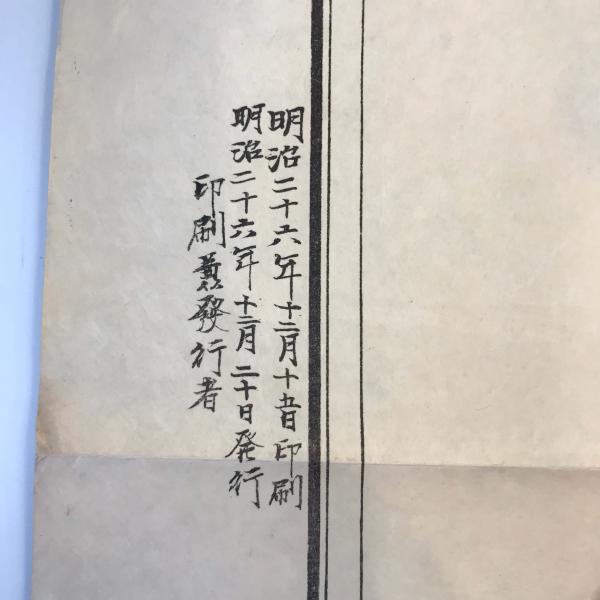 明治二十六年十二月十五日印刷
明治二十六年十二月二十日発行
印刷兼發行者